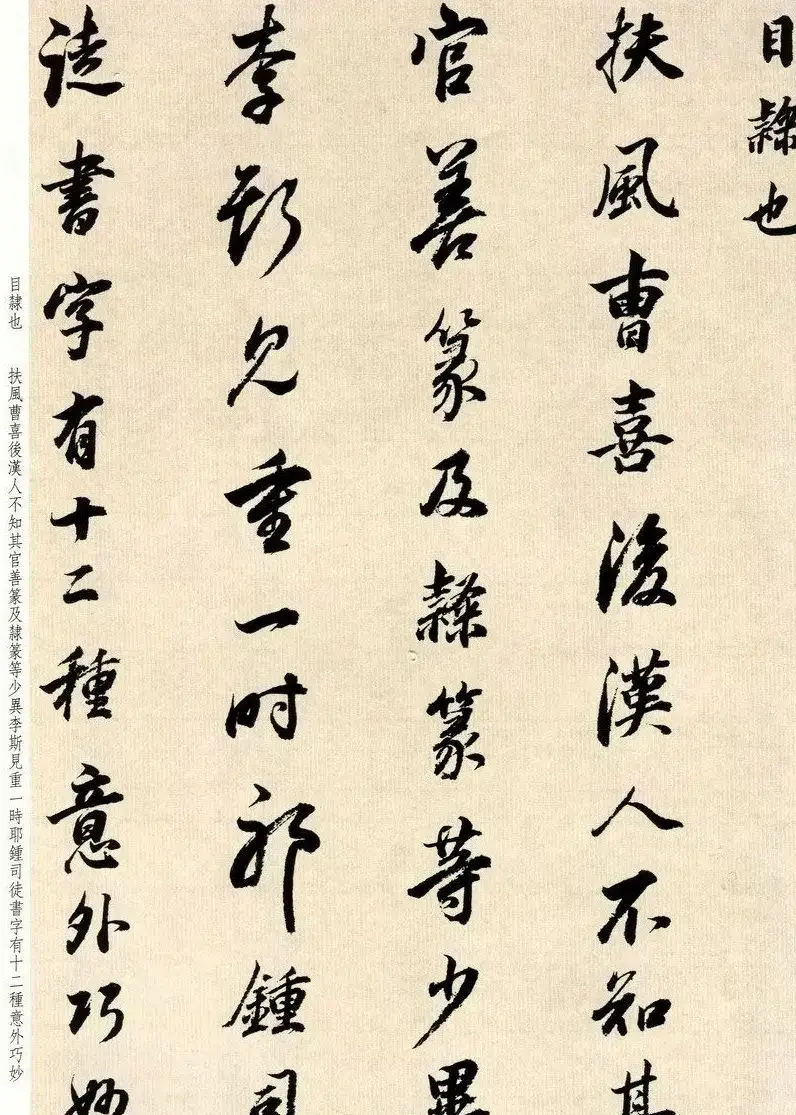 目隸也
扶風曹喜後漢人不知其
官善篆及隸篆等少異
李斯見重一时耶鍾司
徒書字有十二種意外巧妙
目隸也　扶風曹喜後漢人不知其官善篆及隸篆等少異李斯見重一時耶鍾司徒書字有十二種意外巧妙